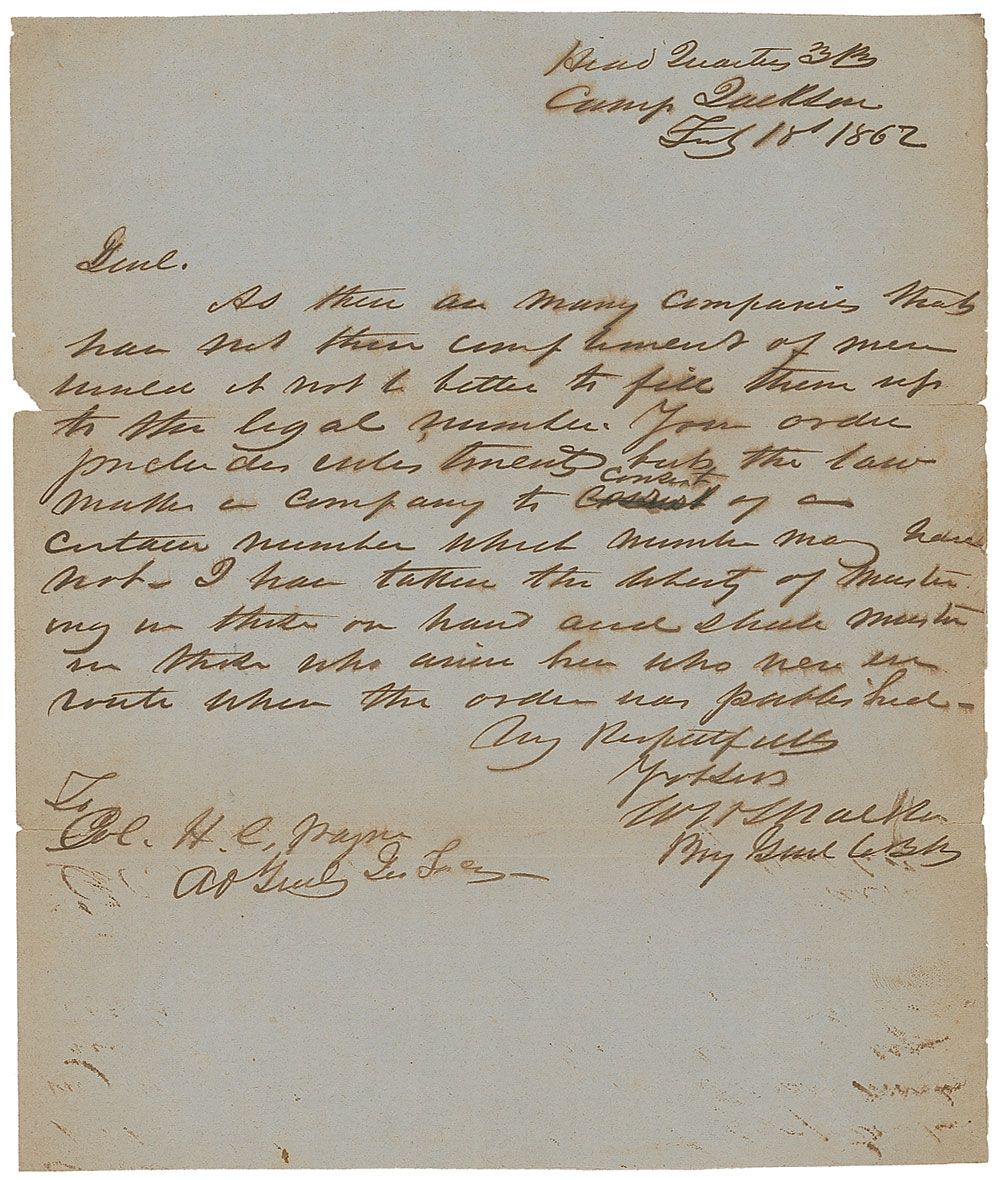 Head Quarters 3 B
Camp Jackson
Feby 18th 1862
Genl.
As there are many companies that
have not their compliment of men
would it not be better to fill them up
to the legal number. Your order
precludes enlistments but the law
makes a company to consist of a
certain number which number may have
not - I have taken the liberty of muster
ing in those on hand and shall muster
in those who arrive here who were en
route when the order was published -
Very Respectfully
Yr obt Svt
W H T Walker
Brig Genl
To
Col. H. C. Wayne
Adt Genl